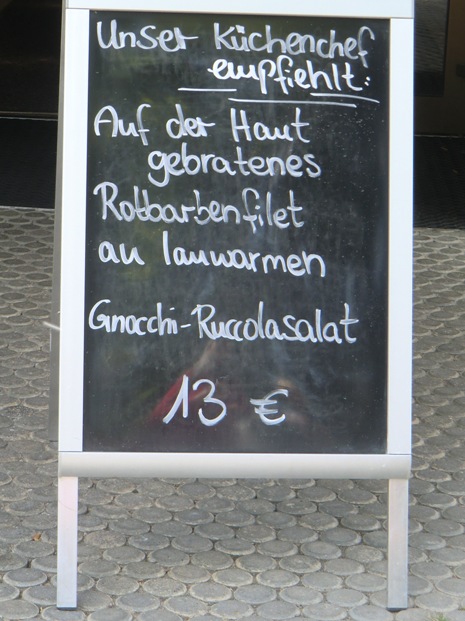 Unser Küchenchef
empfiehlt:
Auf der Haut
gebratenes
Rotbarbenfilet
an lauwarmen
Gnocchi-Ruccolasalat
13 €